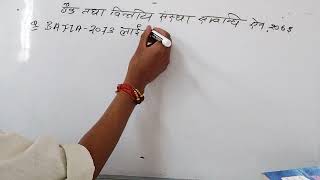 बैंक तथा वित्तिय संस्था सम्बन्धि ऐन, २०६३
BAFIA-२०७३ लाई